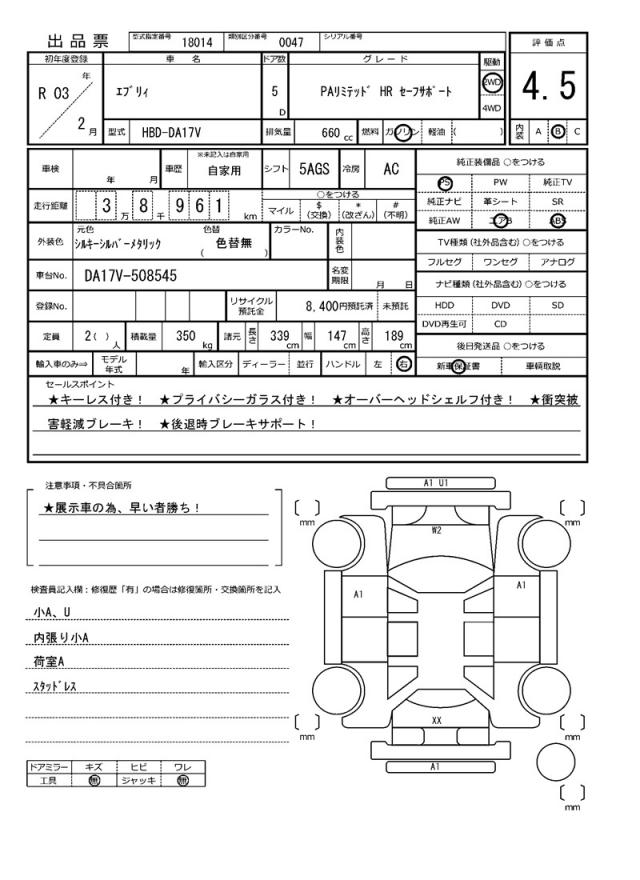 出品票 型式指定番号 18014 類別区分番号 0047 シリアル番号
評価点
4.5
内装 A B C
初年度登録 車名 ドア数 グレード 駆動
R 03 年 2 月
エブリィ
5 D
PAリミテッド HR セーフサポート
2WD
4WD
型式 HBD-DA17V 排気量 660 cc 燃料 ガソリン 軽油 ( )
車検 年 月 車歴 ※未記入は自家用 自家用 シフト 5AGS 冷房 AC
走行距離 3 万 8 千 9 6 1 km
○をつける
マイル $ (交換) * (改ざん) # (不明)
外装色 元色 シルキーシルバーメタリック 色替 ( 色替無 ) カラーNo. 内装色
車台No. DA17V-508545 名変期限 月 日
登録No. リサイクル預託金 8,400円預託済 未預託
定員 2( ) 人 積載量 350 kg 諸元 長さ 339 cm 幅 147 cm 高さ 189 cm
輸入車のみ⇒ モデル年式 年 輸入区分 ディーラー 並行 ハンドル 左 右
純正装備品 ○をつける
PS PW 純正TV
純正ナビ 革シート SR
純正AW エアB ABS
TV種類(社外品含む)○をつける
フルセグ ワンセグ アナログ
ナビ種類(社外品含む)○をつける
HDD DVD SD
DVD再生可 CD
後日発送品 ○をつける
新車保証書 車輌取説
セールスポイント
★キーレス付き! ★プライバシーガラス付き! ★オーバーヘッドシェルフ付き! ★衝突被
害軽減ブレーキ! ★後退時ブレーキサポート!
注意事項・不具合箇所
★展示車の為、早い者勝ち!
検査員記入欄:修復歴「有」の場合は修復箇所・交換箇所を記入
小A、U
内張り小A
荷室A
スタッドレス
ドアミラー キズ ヒビ ワレ
工具 無 ジャッキ 無
A1 U1
[ ] mm
[ ] mm
W2
A1
A1
XX
[ ] mm
[ ] mm
A1
[ ] mm